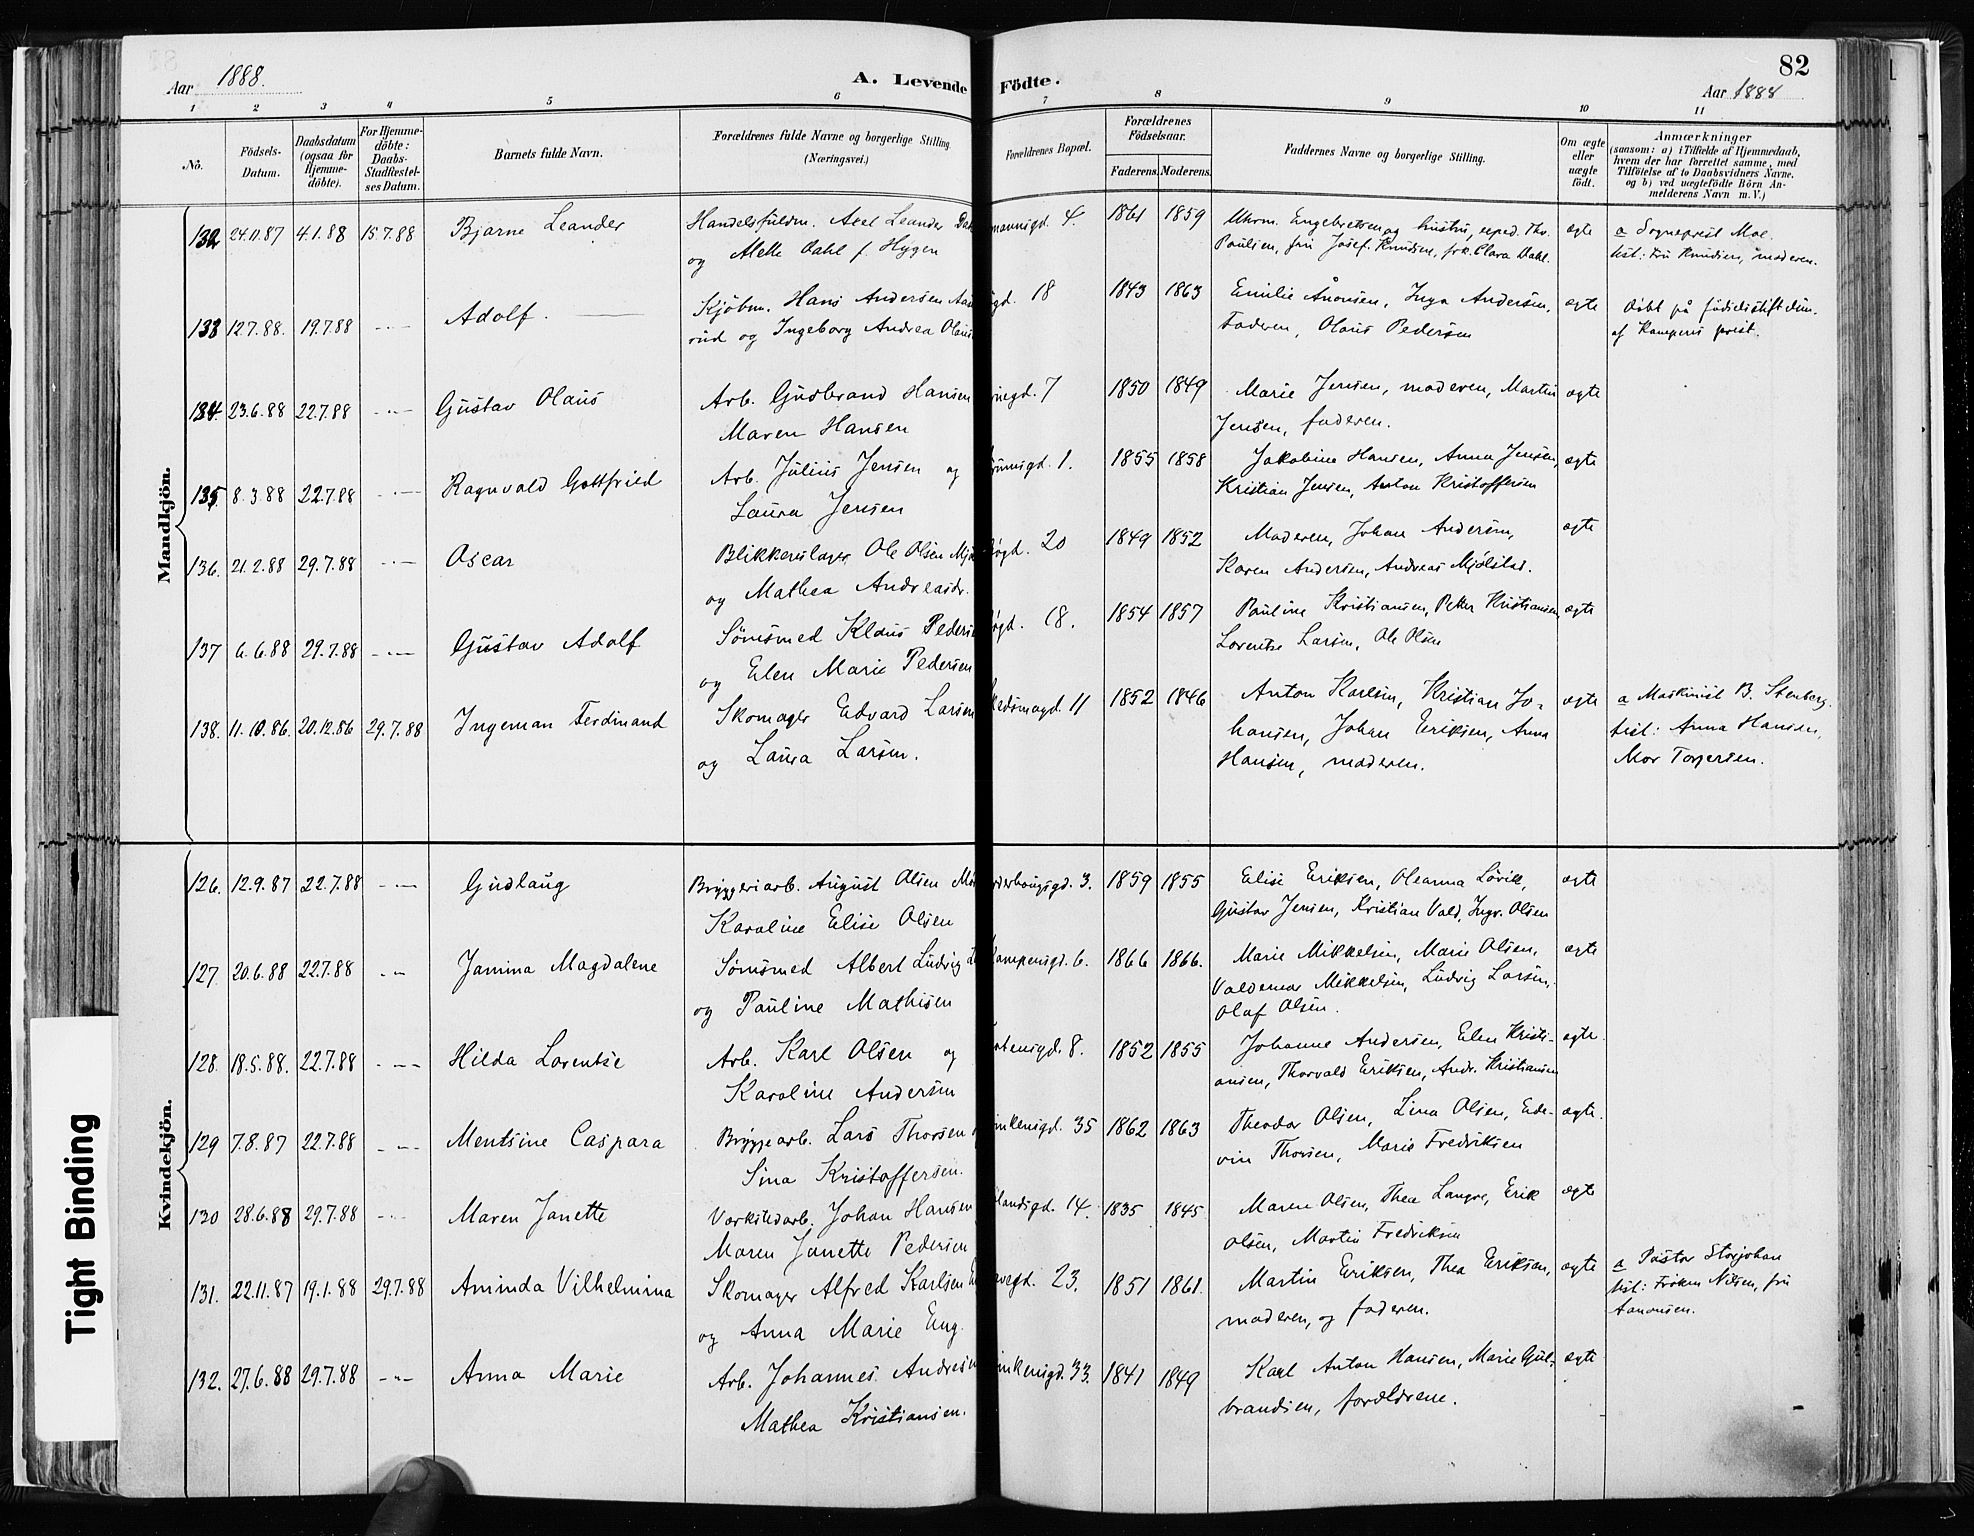 Aar 1888.
A. Levende Födte.
82
Aar 1888
1 2 3 4 5 6 7 8 9 10 11
No.
Födsels-Datum.
Daabsdatum (ogsaa for Hjemme-döbte).
For Hjemme-döbte: Daabs-Stadfæstel-ses Datum.
Barnets fulde Navn.
Forældrenes fulde Navne og borgerlige Stilling. (Næringsvei.)
Forældrenes Bopæl.
Forældrenes Födselsaar.
Faderens. Moderens.
Faddernes Navne og borgerlige Stilling.
Om ægte eller uægte födt.
Anmærkninger
(saasom: a) i Tilfælde af Hjemmedaab, hvem der har forrettet samme, med Tilföielse af to Daabsvidners Navne. og b) ved uægtefödte Börn An-melderens Navn m. V.)
Mandkjön.
132 24.11.87 4.1.88 15.7.88 Bjarne Leander Handelsfuldm. Axel Leander 4. 1861 1859 Engebretsen og hustru, ægte a Sogneprest Moe.
og Mette Dahl f. Hygen Paulsen, fru Josef. Knudsen, frk. Clara Dahl. test: Fru Knudsen, moderen.
133 12.7.88. 19.7.88 - - - Adolf. Kjöbm. Hans Andersen gd. 18 1843 1863 Emilie Ånonsen, Inga Andersen, ægte Döbt på födselsstiftelsen
rud og Ingeborg Andrea Faderen, Olaus Pedersen af Kampens prest.
134 23.6.88 22.7.88 - - - Gustav Olaus Arb. Gudbrand Hansen gd. 7 1850 1849 Marie Jensen, moderen, Martin ægte
Maren Hansen Jensen, faderen.
135 8.3.88 22.7.88 - - - Ragnvald Gottfried Arb. Julius Jensen og gd. 1. 1855 1858 Jakobine Hansen, Anna Jensen, ægte
Laura Jensen Kristian Jensen, Anton Kristoffersen
136. 21.2.88 29.7.88 - - - Oscar Blikkenslager Ole Olsen gd. 20 1849 1852 Moderen, Johan Andersen, ægte
og Mathea Andreasdr. Karen Andersen, Andreas Mjölstad.
137 6.6.88 29.7.88 - - - Gustav Adolf Sömsmed Klaus Pedersen gd. 18. 1854 1857 Pauline Kristiansen, Peter Kristiansen, ægte
og Elen Marie Pedersen Lorentse Larsen, Ole Olsen
138. 11.10.86. 20.12.86 29.7.88 Ingeman Ferdinand Skomager Edvard Larsen 11 1852 1846 Anton Karlsen, Kristian Jo- ægte a Maskinist B. Stenberg.
og Laura Larsen. hansen, Johan Eriksen, Anna test: Anna Hansen,
Hansen, moderen. Mor Torgersen.
Kvindekjön.
126. 12.9.87 22.7.88 - - - Gudlaug Bryggeriarb. August Olsen gd. 3. 1859 1855 Elise Eriksen, Oleanna Lövik, ægte
Karoline Elise Olsen Gustav Jensen, Kristian Vald. Ingv. Olsen
127. 20.6.88 22.7.88 - - Janina Magdalene Sömsmed Albert Ludvig Kampensgd. 6. 1866 1866. Marie Mikkelsen, Marie Olsen, ægte
og Pauline Mathisen Valdemar Mikkelsen, Ludvig Larsen,
Olaf Olsen.
128. 18.5.88. 22.7.88 - - - Hilda Lorentse Arb. Karl Olsen og gd. 8. 1852 1855 Johanne Andersen, Elen Kristi- ægte.
Karoline Andersen ansen, Thorvald Eriksen, Andr. Kristiansen
129 7.8.87 22.7.88 - - - Mentsine Caspara Bryggearb. Lars Thorsen gd. 35 1862 1863 Theodor Olsen, Lina Olsen, Ede- ægte.
Sina Kristoffersen. vin Thorsen, Marie Fredriksen
130 28.6.88 29.7.88 - - - Maren Janette Værkstedarb. Johan Hansen, gd. 14. 1835 1845. Maren Olsen, Thea Langve, Erik ægte
Maren Janette Pedersen Olsen, Martin Fredriksen
131. 22.11.87 19.1.88 29.7.88 Aminda Vilhelmina Skomager Alfred Karlsen gd. 23. 1851 1861. Martin Eriksen, Thea Eriksen, ægte a Pastor Storjohan
og Anna Marie Eng. moderen, og faderen. test: Fröken Nilsen, fru
Aanonsen.
132. 27.6.88 29.7.88 - - - Anna Marie Arb. Johannes Andresen gd. 33. 1841 1849 Karl Anton Hansen, Marie Gul- ægte
Mathea Kristiansen. brandsen, forældrene.
Tight Binding